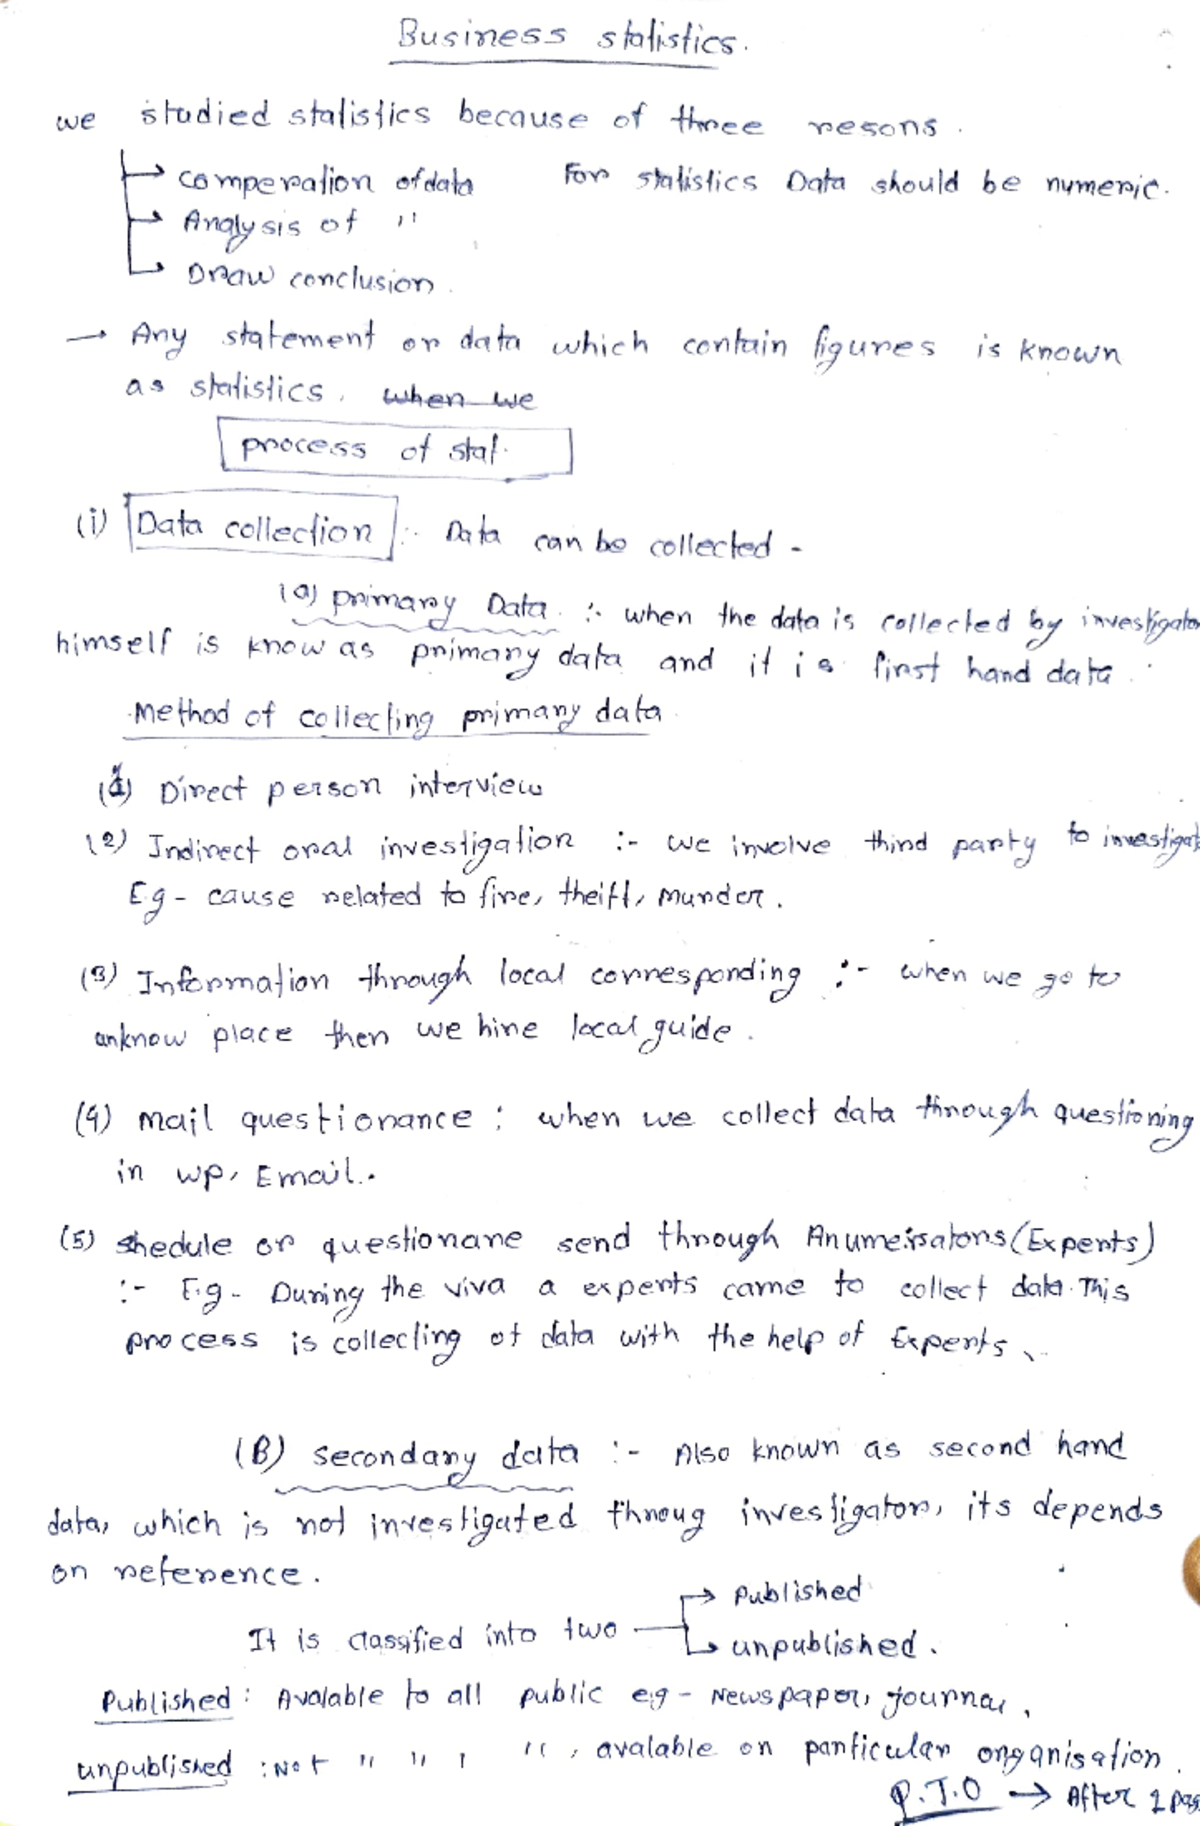 Business statistics.
we studied statistics because of three resons.
comperation of data For statistics Data should be numeric.
Analysis of "
Draw conclusion.
→ Any statement or data which contain figures is known
as statistics. when we
process of stat.
(i) Data collection :- Data can be collected -
(a) primary Data :- when the data is collected by investigator
himself is know as primary data and it is first hand data.
Method of collecting primary data
(1) Direct person interview
(2) Indirect oral investigation :- we involve third party to investigat
Eg - cause related to fire, theift, murder.
(3) Information through local corresponding :- when we go to
unknow place then we hire local guide.
(4) Mail questionance : when we collect data through questioning
in wp, Email.
(5) shedule or questionane send through Anumeisators (Experts)
:- E.g - During the viva a experts came to collect data. This
process is collecting of data with the help of Experts.
(B) secondary data :- Also known as second hand
data, which is not investigated throug investigator, its depends
on reference.
It is classified into two → Published
→ unpublished.
Published : Avalable to all public e.g - Newspaper, journal,
unpublished : Not " " , " , avalable on particular organisation.
P.T.O → After 1 pag